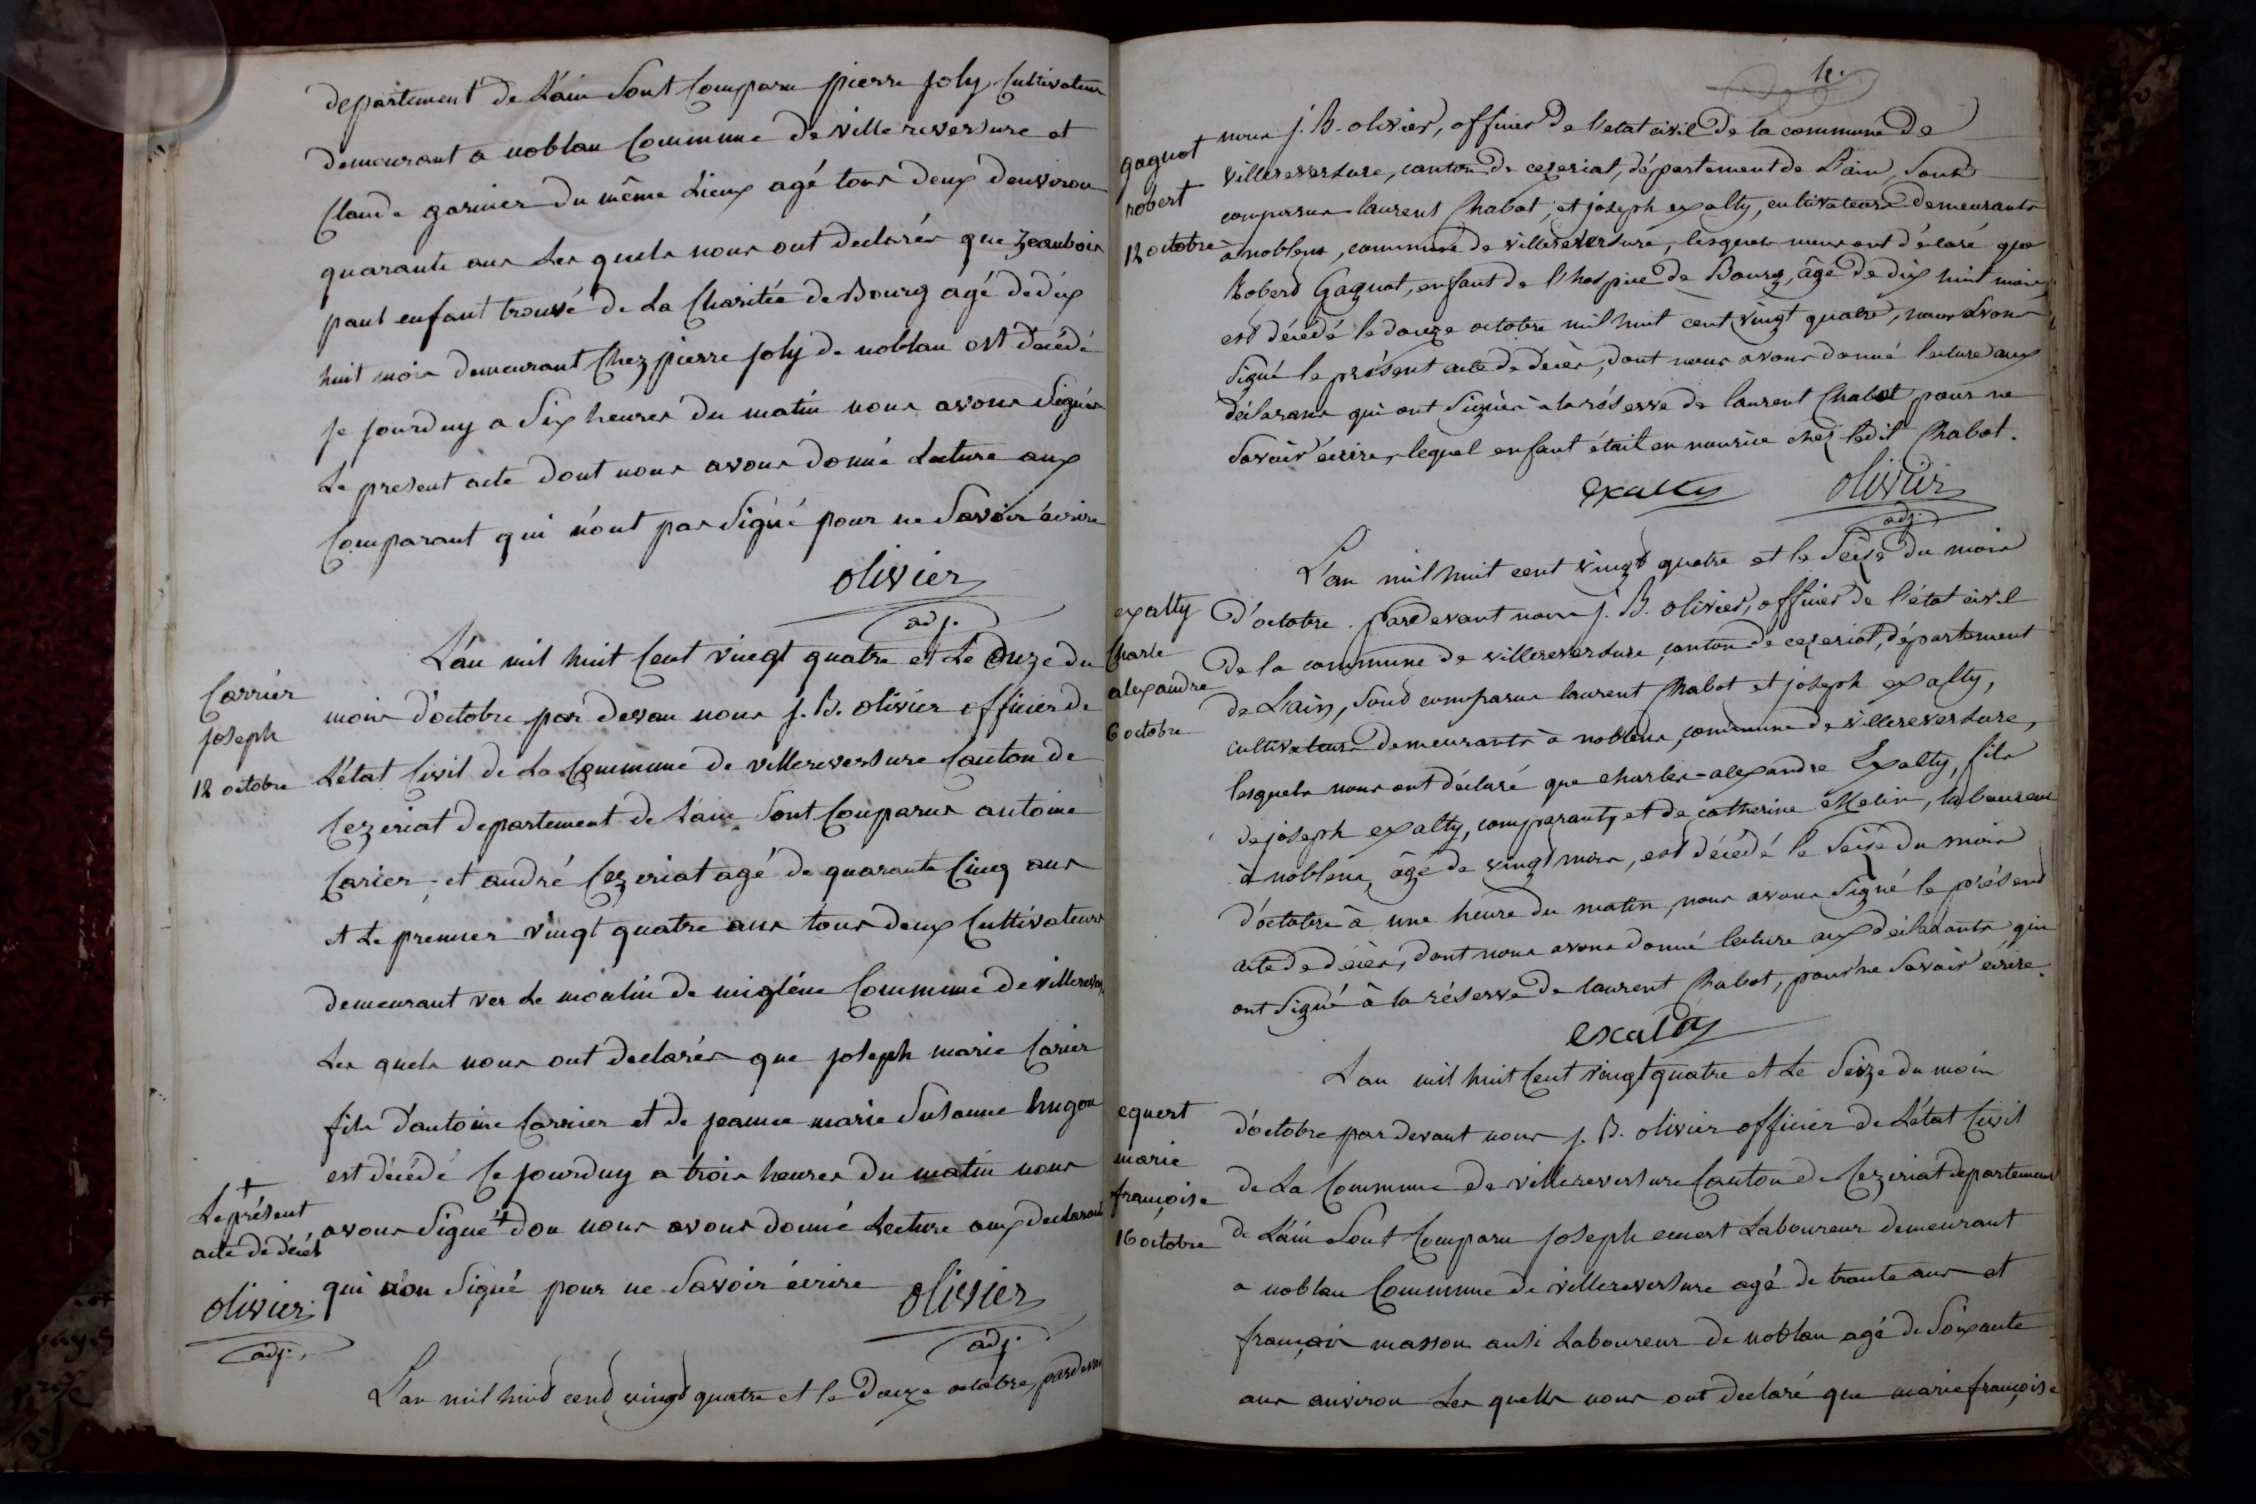 departement de Lain sont Comparu pierre joly Cultivateur
demeurant a noblan Commune de villereversure et
Claude garnier du même Lieux agé tous deux denviron
quarante ans Les quels nous ont declarés que
paul enfant trouvé de La Charitée de Bourg agé de dix
huit mois demeurant Chez pierre joly de noblan est décédé
je jourduy a six heures du matin nous avons Signés
Le present acte dont nous avons donné Lecture aux
Comparant qui n'ont pas signé pour ne Savoir écrire
olivier
adj.
Carrier
joseph
12 octobre
L'an mil huit Cent vingt quatre et Le onze du
mois d'octobre par devan nous j. B. olivier officier de
L'état Civil de La Commune de villereversure Canton de
Cezeriat departement de Lain sont Comparus antoine
Carier et andré Cezeriat agé de quarante Cinq ans
et Le premier vingt quatre ans tous deux Cultivateurs
demeurant ver Le moulin de migléne Commune de villerever
Les quels nous ont declarés que joseph marie Carier
fils d'antoine Carrier et de jeanne marie Susanne hugon
est décédé Ce jourduy a trois heures du matin nous
avons Signé + don nous avons donné Lecture aux declarant
qui n'on Signé pour ne Savoir écrire
olivier
adj.
+
Le présent
acte de décés
olivier
adj.
L'an mil huit cent vingt quatre et le douze octobre, pardevan
4.
gagnot
robert
12 octobre
nous J. B. olivier, officier de l'etat civil de la commune de
villereversure, canton de cezeriat, département de L'ain, sont
comparus laurent Chabot, et joseph exalty, cultivateurs demeurants
à noblens, commune de villereversure, lesquels nous ont déclaré que
Robert Gagnot, enfant de l'hospice de Bourg, âgé de dix huit mois,
est décédé le douze octobre mil huit cent vingt quatre, nous avons
Signé le présent acte de décès, dont nous avons donné lecture aux
déclarans qui ont signés à la réserve de laurent Chabot pour ne
Savoir écrire, lequel enfant était en nourice chez ledit Chabot.
exalty
olivier
adj.
exalty
Charle
alexandre
6 octobre
L'an mil huit cent vingt quatre et le Seize du mois
d'octobre. pardevant nous J. B. olivier, officier de l'état civil
de la commune de villereversure, canton de cezeriat, département
de L'ain, sont comparus laurent Chabot et joseph exalty,
cultivateurs demeurants à noblens, commune de villereversure,
lesquels nous ont déclaré que charles-alexandre Exalty, fils
de joseph exalty, comparant, et de catherine, laboureur
à noblens, âgé de vingt mois, est décédé le Seize du mois
d'octobre à une heure du matin, nous avons Signé le présent
acte de décès, dont nous avons donné lecture aux déclarants qui
ont Signé à la réserve de laurent Chabot, pour ne Savoir écrire.
exalty
equert
marie
françoise
16 octobre
L'an mil huit Cent vingt quatre et Le Seize du mois
d'octobre par devant nous j. B. olivier officier de L'état Civil
de La Commune de villereversure Canton de Cezeriat departement
de L'ain sont Comparu joseph Laboureur demeurant
a noblan Commune de villereversure agé de trante ans et
françois masson ausi Laboureur de noblan agé de Soixante
ans anviron Les quells nous ont declaré que marie françoise